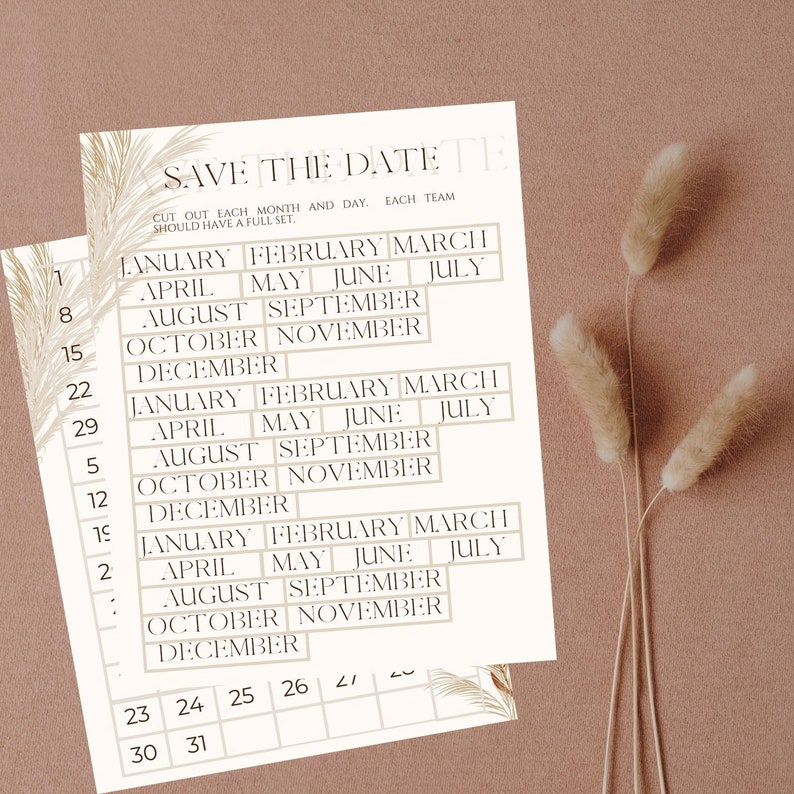 SAVE THE DATE
CUT OUT EACH MONTH AND DAY. EACH TEAM
SHOULD HAVE A FULL SET.
JANUARY FEBRUARY MARCH
APRIL MAY JUNE JULY
AUGUST SEPTEMBER
OCTOBER NOVEMBER
DECEMBER
JANUARY FEBRUARY MARCH
APRIL MAY JUNE JULY
AUGUST SEPTEMBER
OCTOBER NOVEMBER
DECEMBER
JANUARY FEBRUARY MARCH
APRIL MAY JUNE JULY
AUGUST SEPTEMBER
OCTOBER NOVEMBER
DECEMBER
1
8
15
22
29
5
12
19
26
23 24 25 26 27 28
30 31